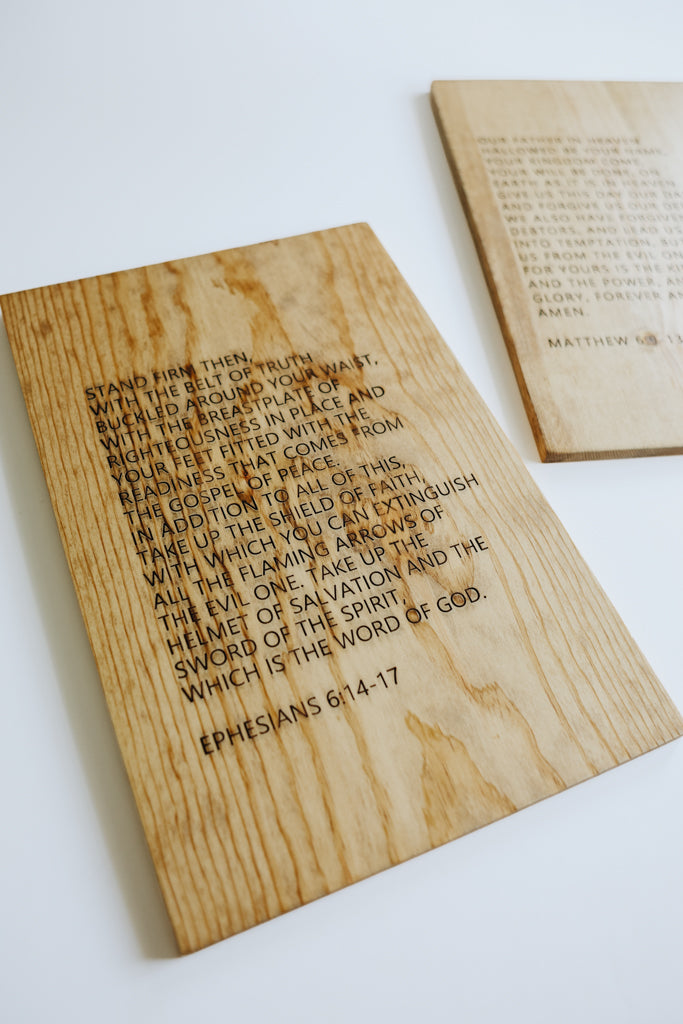 STAND FIRM THEN,
WITH THE BELT OF TRUTH
BUCKLED AROUND YOUR WAIST,
WITH THE BREASTPLATE OF
RIGHTEOUSNESS IN PLACE AND
YOUR FEET FITTED WITH THE
READINESS THAT COMES FROM
THE GOSPEL OF PEACE.
IN ADDTION TO ALL OF THIS,
TAKE UP THE SHIELD OF FAITH,
WITH WHICH YOU CAN EXTINGUISH
ALL THE FLAMING ARROWS OF
THE EVIL ONE. TAKE UP THE
HELMET OF SALVATION AND THE
SWORD OF THE SPIRIT,
WHICH IS THE WORD OF GOD.
EPHESIANS 6:14-17
OUR FATHER IN HEAVEN
HALLOWED BE YOUR NAME,
YOUR KINGDOM COME,
YOUR WILL BE DONE, ON
EARTH AS IT IS IN HEAVEN
GIVE US THIS DAY OUR
AND FORGIVE US OUR
WE ALSO HAVE FORGIVEN
DEBTORS, AND LEAD US
INTO TEMPTATION, BUT
US FROM THE EVIL ONE
FOR YOURS IS THE
AND THE POWER,
GLORY, FOREVER
AMEN.
MATTHEW